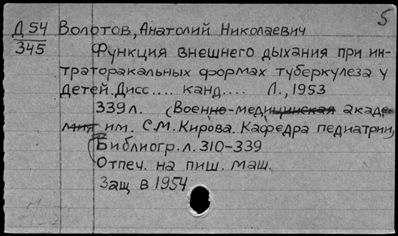 5
Д 54 Волотов, Анатолий Николаевич
345
Функция внешнего дыхания при ин-
траторакальных формах туберкулеза у
детей. Дисс.... канд.... Л., 1953
339 л. (Военно-медицинская акаде-
мия им. С.М. Кирова. Кафедра педиатрии)
Библиогр. л. 310-339
Отпеч. на пиш. маш.
Защ в 1954